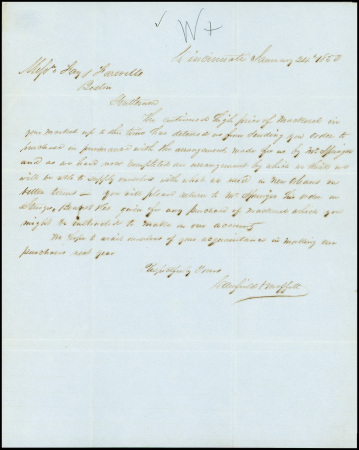 W+
Cincinnati January 24th 1850
Messrs Fay & Farwells
Boston
Gentlemen
The continued high price of Mackerel in
your market up to this time has deterred us from sending you orders to
purchase in pursuance with the arrangement made for us by Mr Springer
and as we have now completed an arrangement by which we think we
will be able to supply ourselves with what we need in New Orleans on
better terms — you will please return to Mr Springer his order on
given for any purchase of mackerel which you
might be instructed to make on our account
We hope to avail ourselves of your acquaintance in making our
purchases next year
Respectfully Yours
Canfield & Moffett